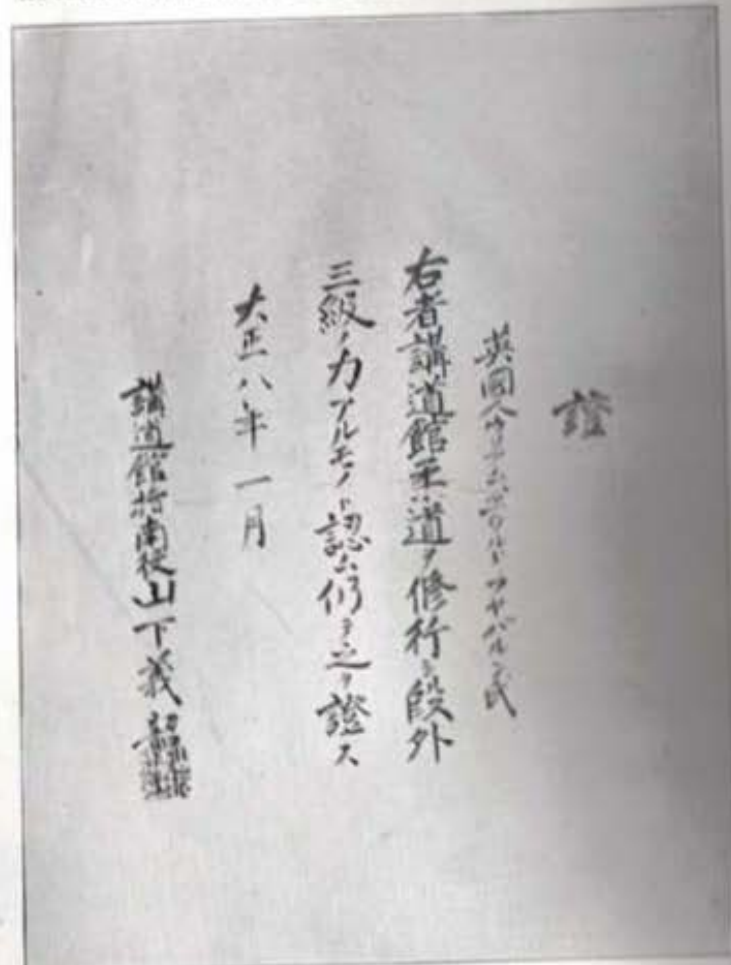 證
英国人ウリアム、フェヤバルン氏
右者講道館柔道ヲ修行シ段外
三級ノ力アルモノト認ム仍テ之ヲ證ス
大正八年一月
講道館指南役山下義韶